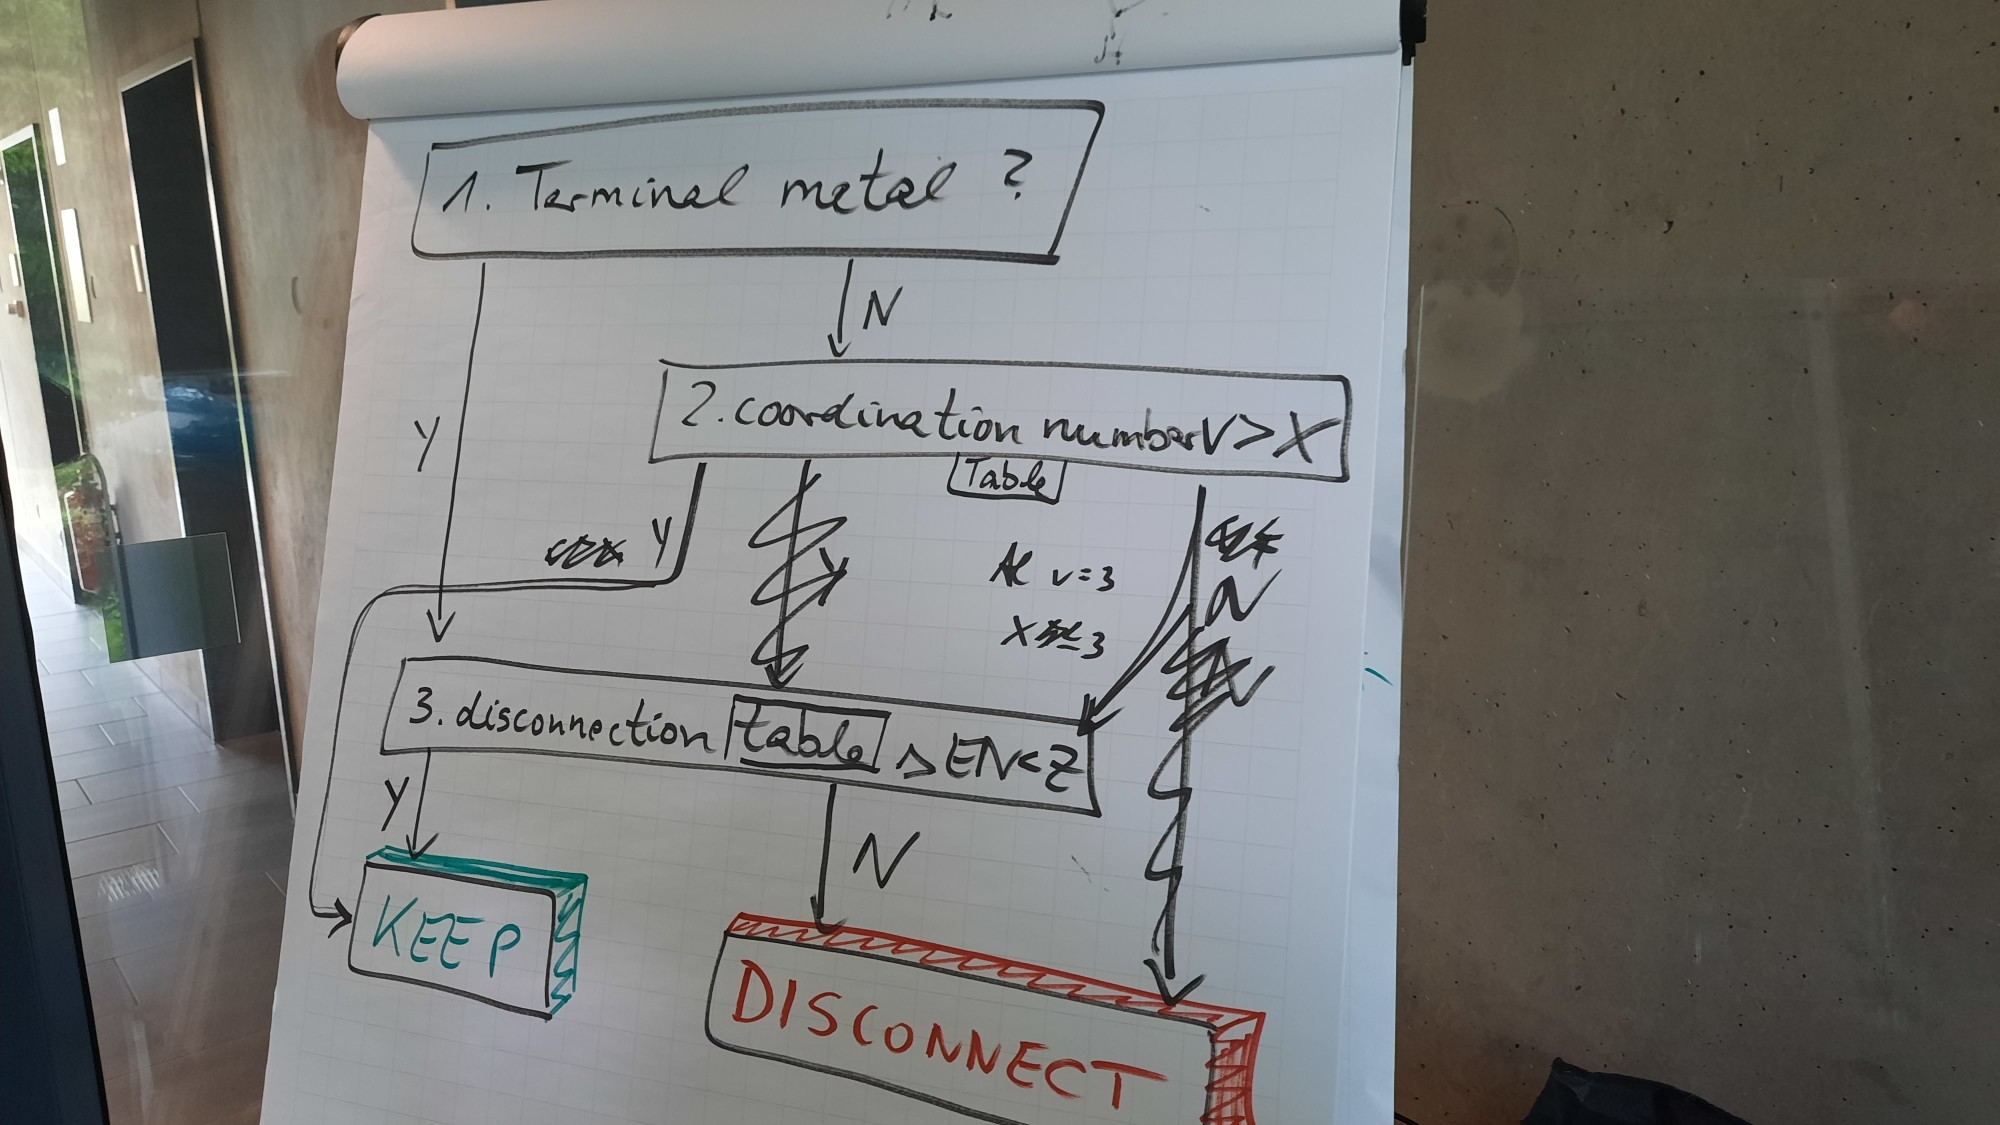 1. Terminal metal ?
N
Y
2. coordination number V > X
Table
Y
Al v=3
N
3. disconnection table ΔEN<Z
Y
N
KEEP
DISCONNECT